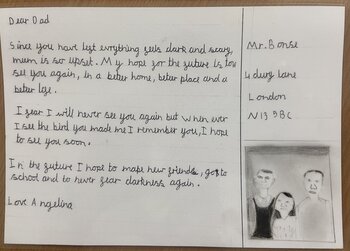 Dear Dad
Since you have left evrything feels dark and scary,
mum is so upset. My hope for the future is to
see you again, in a better home, better place and a
better life.
I fear I will never see you again but when ever
I see the bird you made me I remember you, I hope
to see you soon.
In the future I hope to make new friends, go to
school and to never fear darkness again.
Love Angelina
Mr. Bonse
4 dury lane
London
N13 9BC